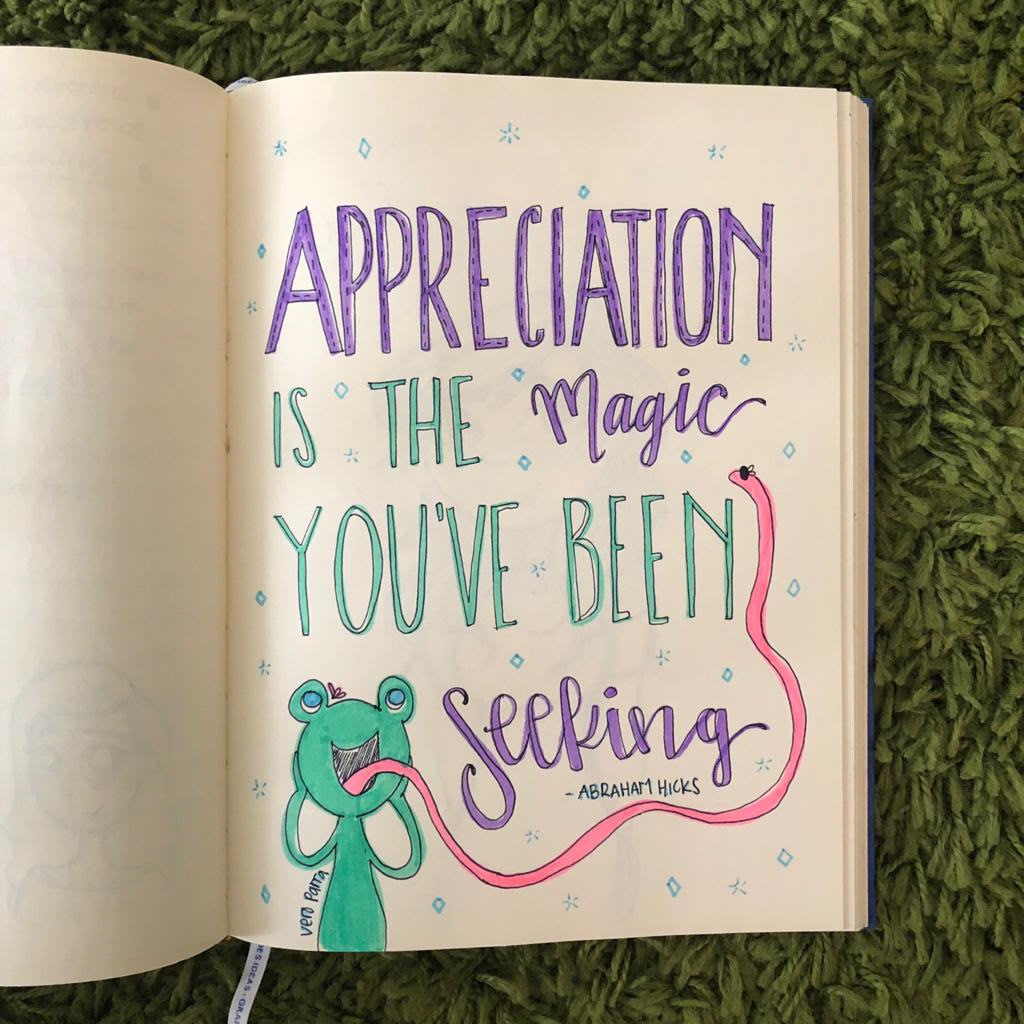 APPRECIATION
IS THE magic
YOU'VE BEEN
Seeking
- ABRAHAM HICKS
vero parra